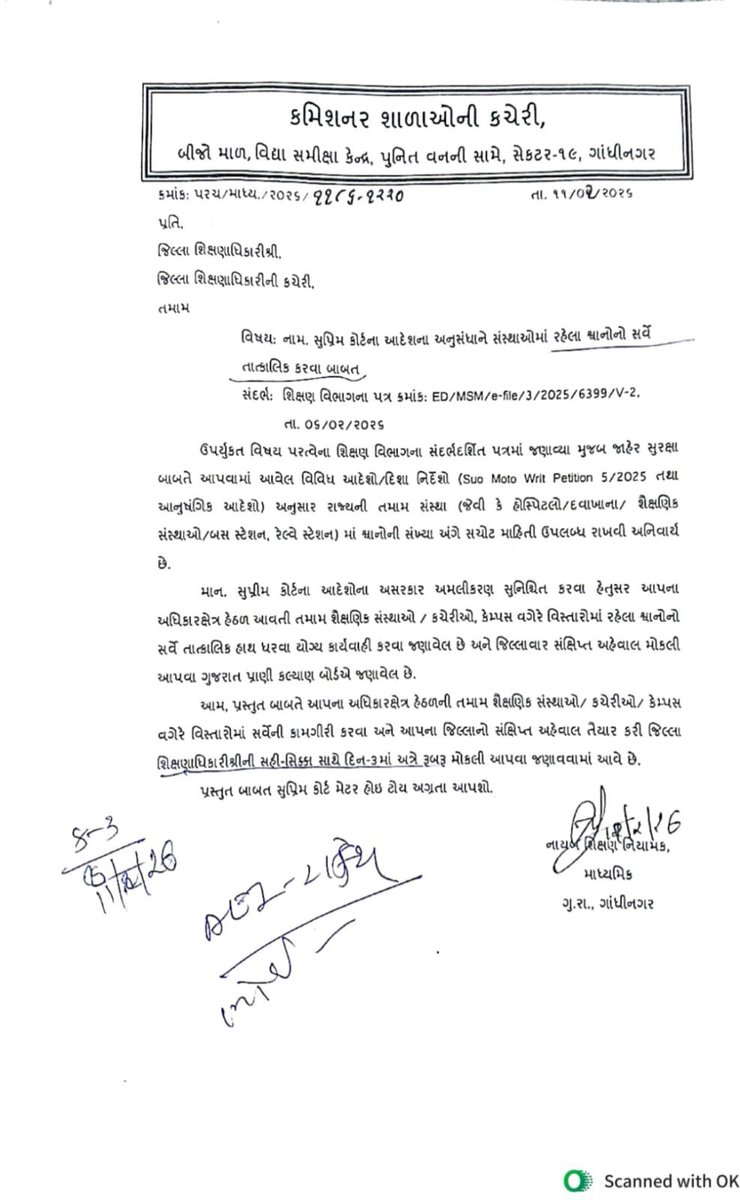 કમિશનર શાળાઓની કચેરી,
બીજો માળ, વિદ્યા સમીક્ષા કેન્દ્ર, પુનિત વનની સામે, સેકટર-૧૯, ગાંધીનગર
ક્રમાંક: પરચ/માધ્ય./૨૦૨૬/ ૧૧૮૬-૧૨૨૦ તા. ૧૧/૦૨/૨૦૨૬
પ્રતિ,
જિલ્લા શિક્ષણાધિકારીશ્રી,
જિલ્લા શિક્ષણાધિકારીની કચેરી,
તમામ
વિષય: નામ. સુપ્રિમ કોર્ટના આદેશના અનુસંધાને સંસ્થાઓમાં રહેલા શ્વાનોનો સર્વે
તાત્કાલિક કરવા બાબત
સંદર્ભ: શિક્ષણ વિભાગના પત્ર ક્રમાંક: ED/MSM/e-file/3/2025/6399/V-2,
તા. ૦૬/૦૨/૨૦૨૬
ઉપર્યુકત વિષય પરત્વેના શિક્ષણ વિભાગના સંદર્ભદર્શિત પત્રમાં જણાવ્યા મુજબ જાહેર સુરક્ષા
બાબતે આપવામાં આવેલ વિવિધ આદેશો/દિશા નિર્દેશો (Suo Moto Writ Petition 5/2025 તથા
આનુષંગિક આદેશો) અનુસાર રાજ્યની તમામ સંસ્થા (જેવી કે હોસ્પિટલો/દવાખાના/ શૈક્ષણિક
સંસ્થાઓ/બસ સ્ટેશન, રેલ્વે સ્ટેશન) માં શ્વાનોની સંખ્યા અંગે સચોટ માહિતી ઉપલબ્ધ રાખવી અનિવાર્ય
છે.
માન. સુપ્રીમ કોર્ટના આદેશોના અસરકાર અમલીકરણ સુનિશ્ચિત કરવા હેતુસર આપના
અધિકારક્ષેત્ર હેઠળ આવતી તમામ શૈક્ષણિક સંસ્થાઓ / કચેરીઓ, કેમ્પસ વગેરે વિસ્તારોમાં રહેલા શ્વાનોનો
સર્વે તાત્કાલિક હાથ ધરવા યોગ્ય કાર્યવાહી કરવા જણાવેલ છે અને જિલ્લાવાર સંક્ષિપ્ત અહેવાલ મોકલી
આપવા ગુજરાત પ્રાણી કલ્યાણ બોર્ડએ જણાવેલ છે.
આમ, પ્રસ્તુત બાબતે આપના અધિકારક્ષેત્ર હેઠળની તમામ શૈક્ષણિક સંસ્થાઓ/ કચેરીઓ/ કેમ્પસ
વગેરે વિસ્તારોમાં સર્વેની કામગીરી કરવા અને આપના જિલ્લાનો સંક્ષિપ્ત અહેવાલ તૈયાર કરી જિલ્લા
શિક્ષણાધિકારીશ્રીની સહી-સિક્કા સાથે દિન-૩માં અત્રે રૂબરૂ મોકલી આપવા જણાવવામાં આવે છે.
પ્રસ્તુત બાબત સુપ્રિમ કોર્ટ મેટર હોઇ ટોચ અગ્રતા આપશો.
નાયબ શિક્ષણ નિયામક,
માધ્યમિક
ગુ.રા., ગાંધીનગર
Scanned with OK